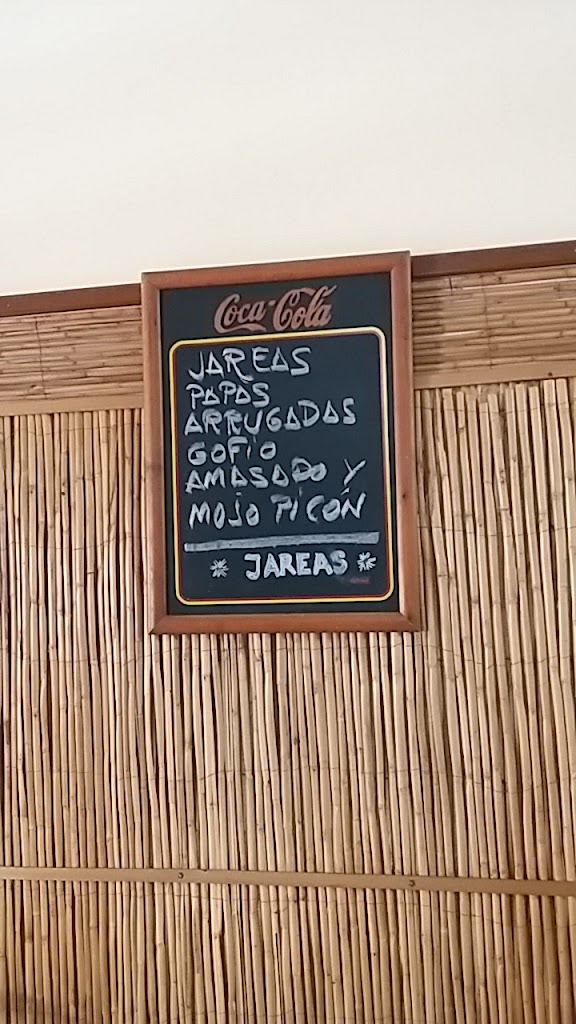 Coca-Cola
JAREAS
PAPAS
ARRUGADAS
GOFIO
AMASADO Y
MOJO PICÓN
* JAREAS *